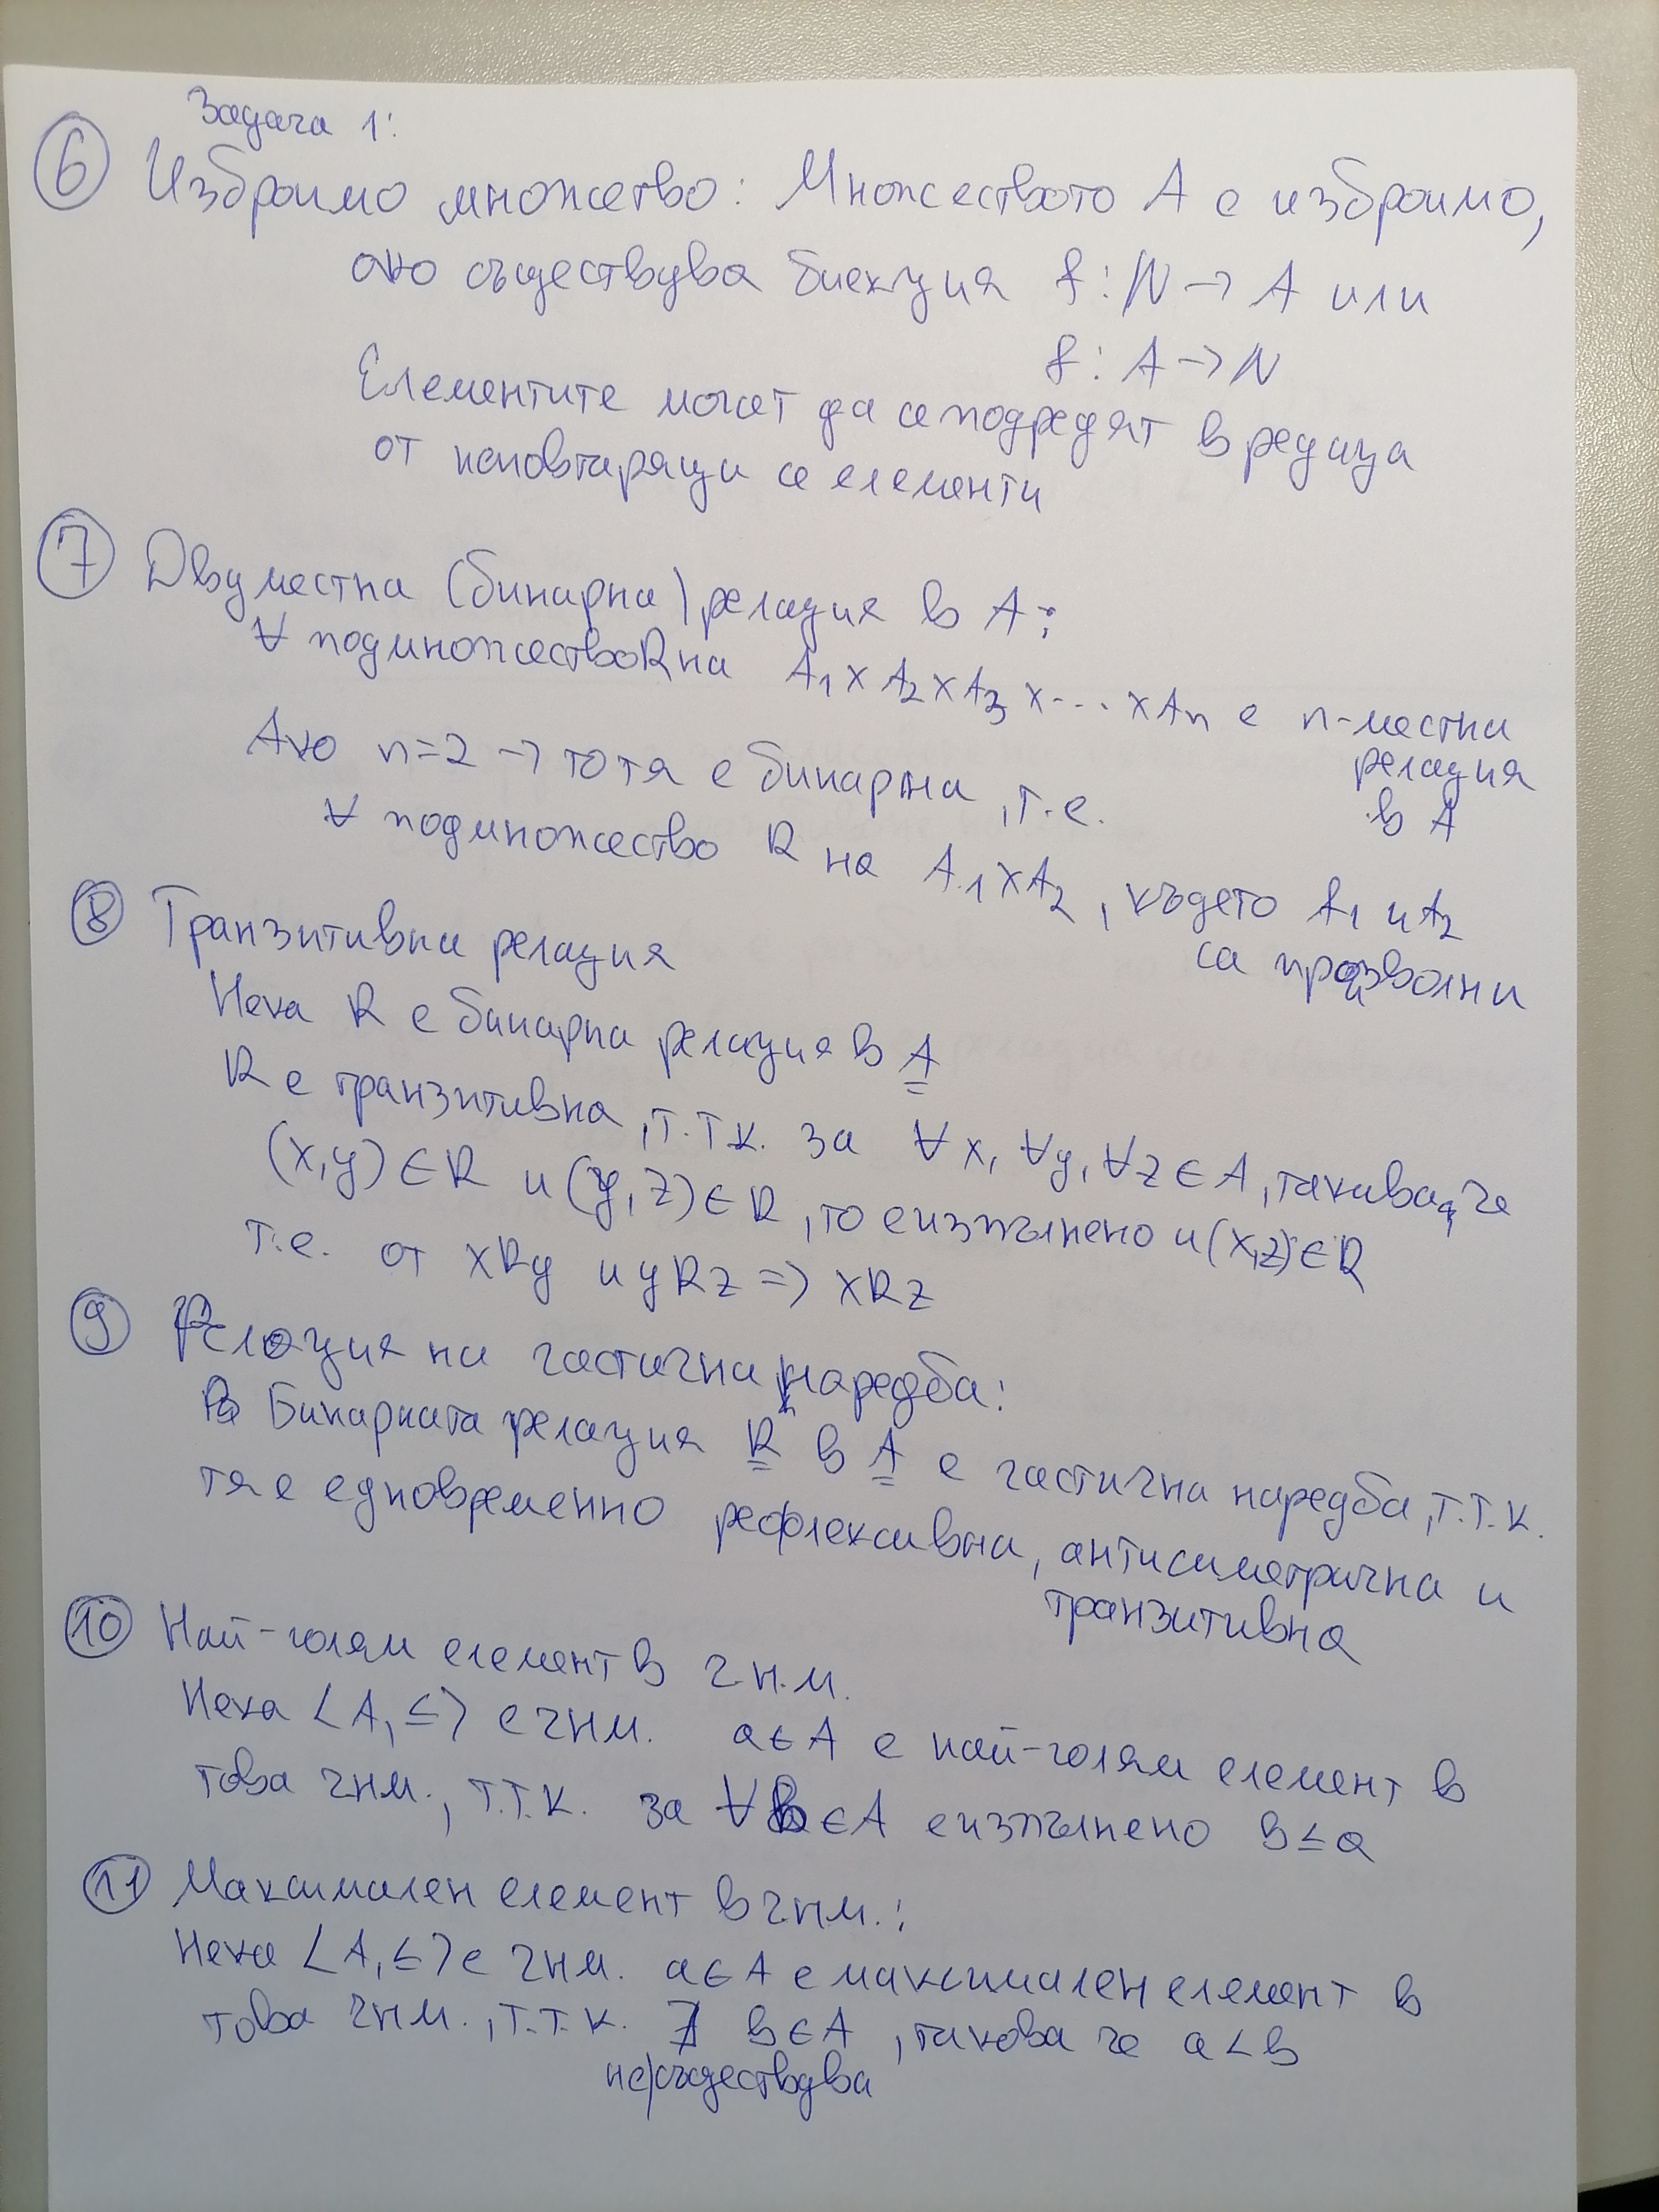 Задача 1:
⑥ Изброимо множество: Множеството А е изброимо,
ако съществува биекция f: ℕ → A или
f: A → ℕ
Елементите могат да се подредят в редица
от неповтарящи се елементи
⑦ Двуместна (бинарна) релация в А:
∀ подмножество R на A₁ x A₂ x A₃ x ... x Aₙ е n-местна
релация
в А
Ако n=2 → то тя е бинарна, т.е.
∀ подмножество R на A₁ x A₂, където A₁ и A₂
са произволни
⑧ Транзитивна релация
Нека R е бинарна релация в A
R е транзитивна, т.т.к. за ∀x, ∀y, ∀z ∈ A, такива, че
(x,y) ∈ R и (y,z) ∈ R, то е изпълнено и (x,z) ∈ R
т.е. от xRy и yRz => xRz
⑨ Релация на частична наредба:
Бинарната релация R в A е частична наредба, т.т.к.
тя е едновременно рефлексивна, антисиметрична и
транзитивна
⑩ Най-голям елемент в ч.н.м.
Нека <A, ≤> е чнм. a ∈ A е най-голям елемент в
това чнм., т.т.к. за ∀ b ∈ A е изпълнено b ≤ a
⑪ Максимален елемент в чнм.:
Нека <A, ≤> е чнм. a ∈ A е максимален елемент в
това чнм., т.т.к. ∄ b ∈ A, такова че a < b
не съществува